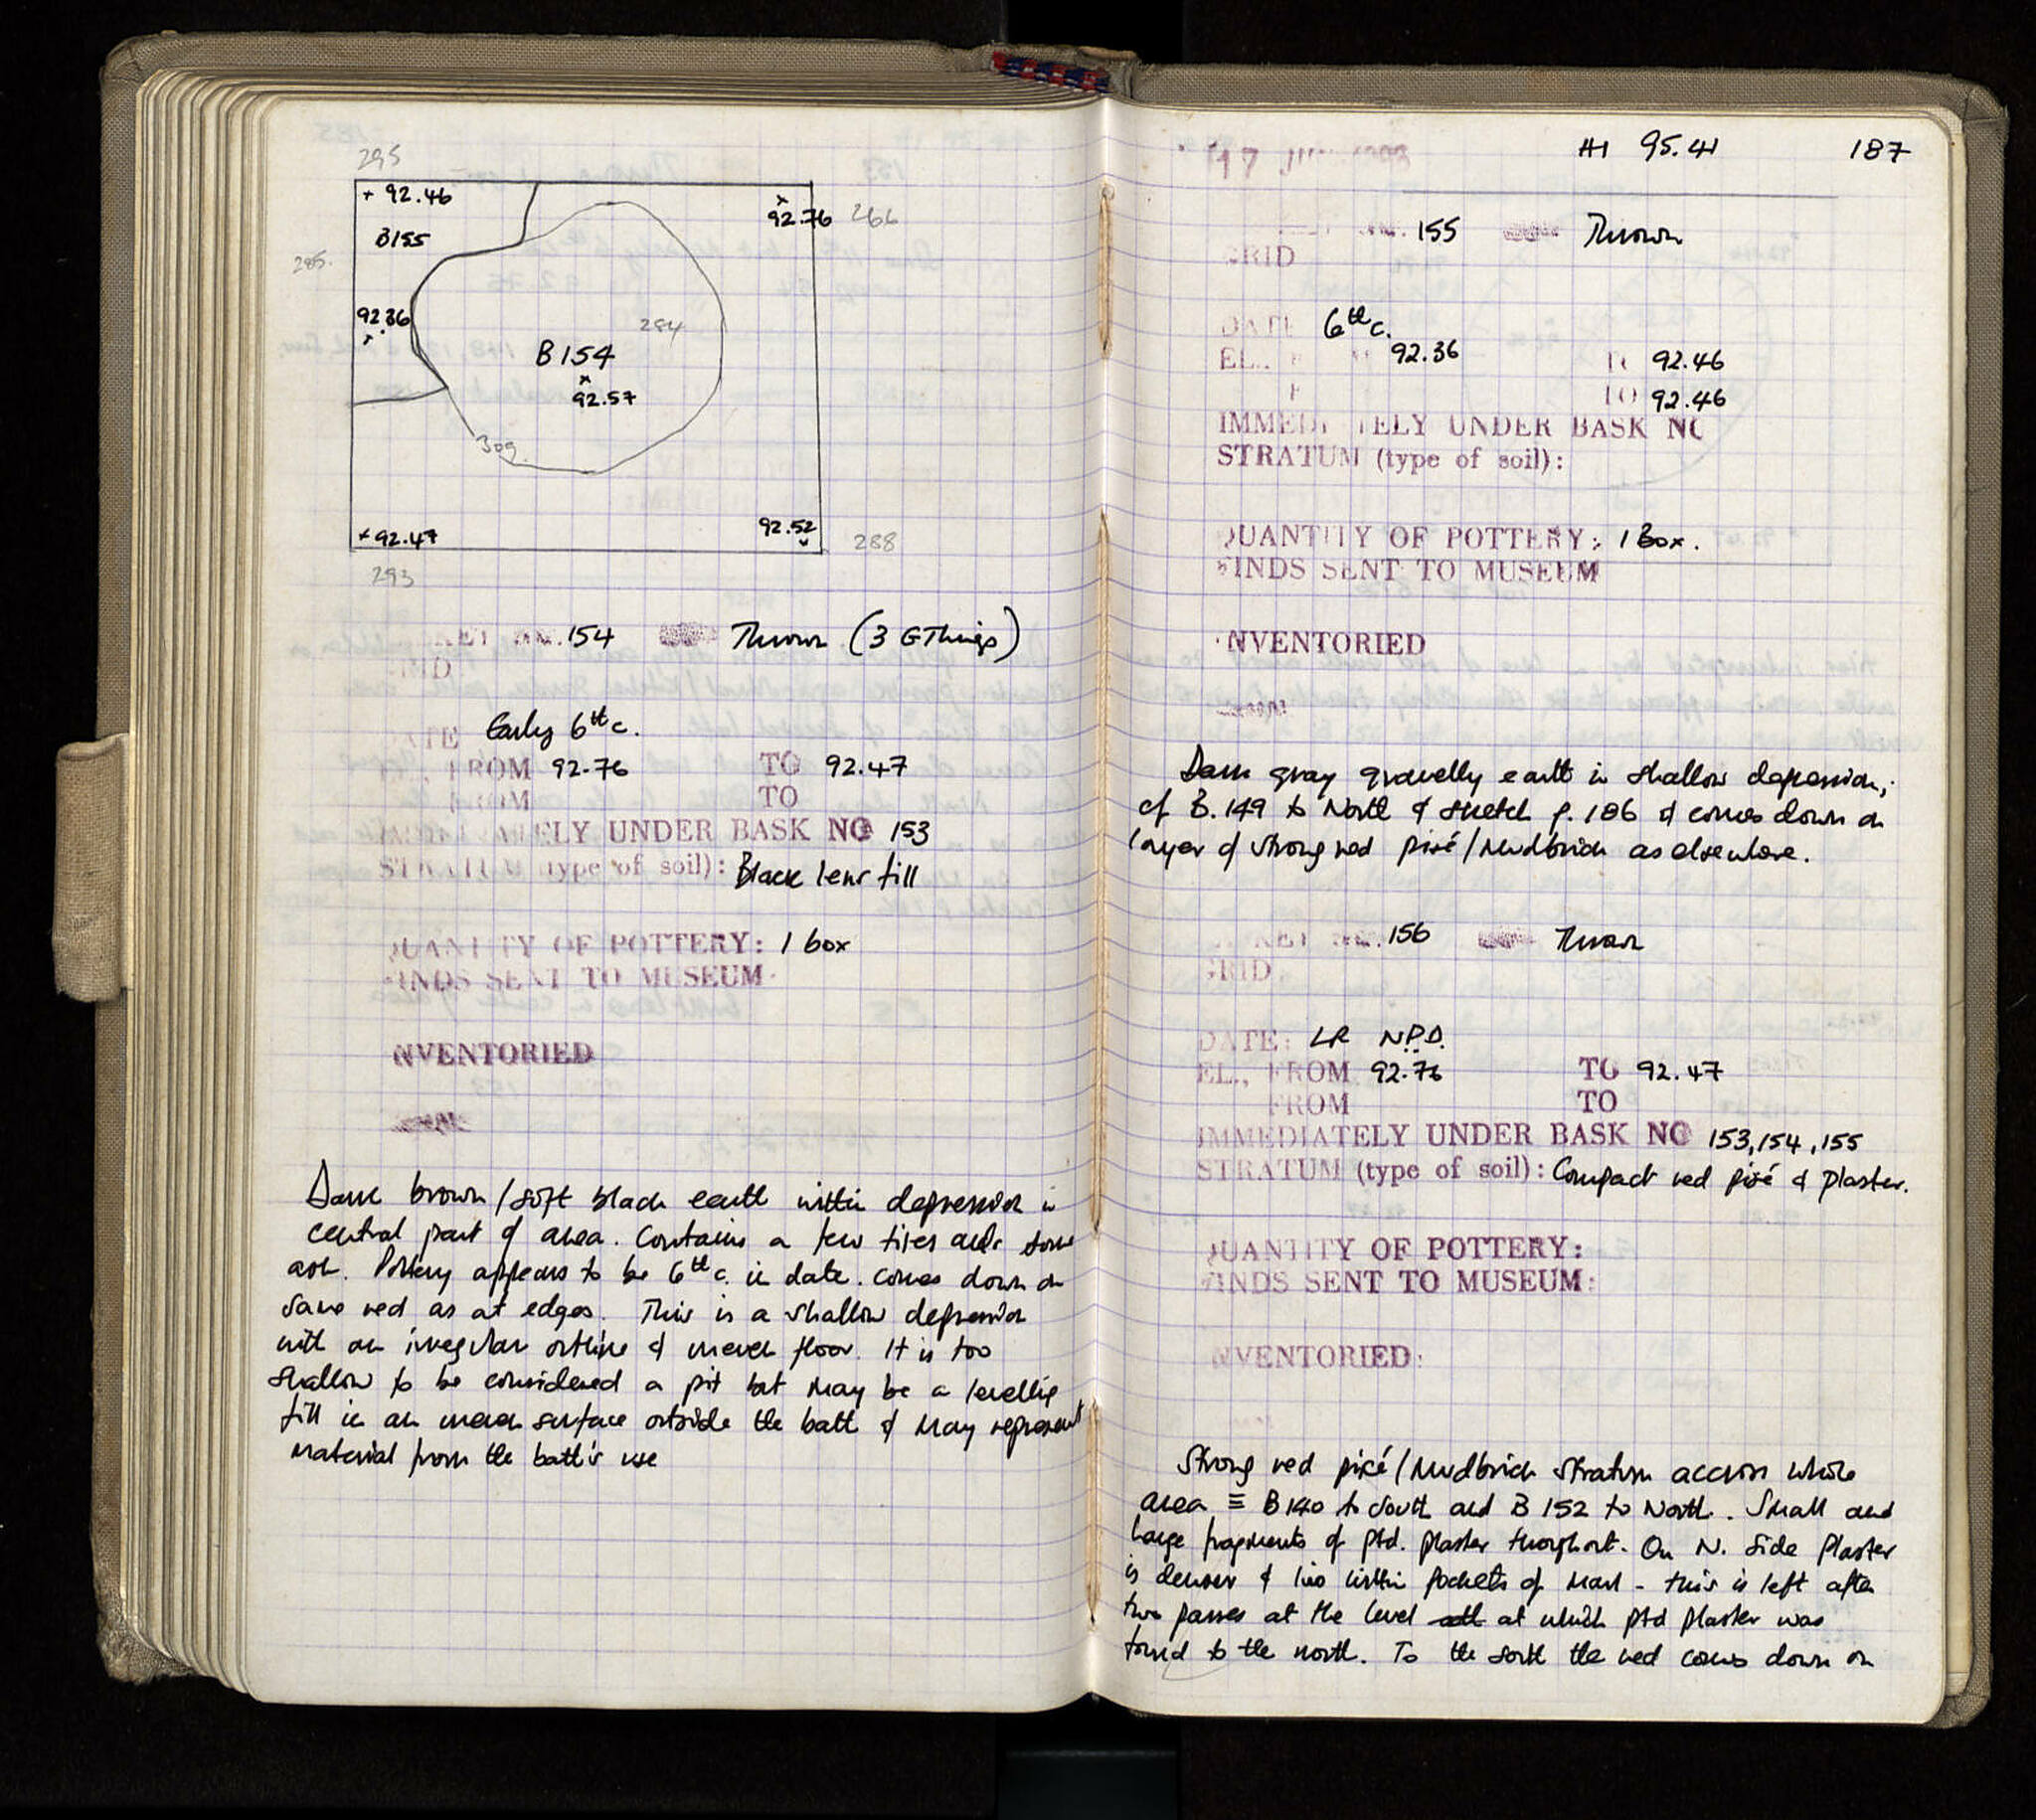 295
+ 92.46
92.76 266
B155
285.
92.36
284
B 154
92.57
309.
92.52
+ 92.47
288
293
154 Thrown (3 GThings)
Early 6th c.
FROM 92.76 TO 92.47
FROM TO
ELY UNDER BASK NO 153
STRATUM (type of soil): Black lens fill
QUANTITY OF POTTERY: 1 box
FINDS SENT TO MUSEUM
INVENTORIED
Dark brown/soft black earth within depression in
central part of area. Contains a few tiles and some
ash. Pottery appears to be 6th c. in date. Comes down on
same red as at edges. This is a shallow depression
with an irregular outline & uneven floor. It is too
shallow to be considered a pit but may be a levelling
fill in an uneven surface outside the bath & may represent
material from the bath's use
17 HI 95.41 187
155 Thrown
GRID
DATE 6th c.
EL., 92.36 TO 92.46
TO 92.46
IMMEDIATELY UNDER BASK NO
STRATUM (type of soil):
QUANTITY OF POTTERY: 1 Box.
FINDS SENT TO MUSEUM
INVENTORIED
Dark gray gravelly earth in shallow depression,
cf B.149 to North & sketch p. 186 & comes down on
layer of strong red pisé/Mudbrick as elsewhere.
156 Thrown
GRID
DATE: LR N.P.D.
EL., FROM 92.76 TO 92.47
FROM TO
IMMEDIATELY UNDER BASK NO 153, 154, 155
STRATUM (type of soil): Compact red pisé & plaster.
QUANTITY OF POTTERY:
FINDS SENT TO MUSEUM:
INVENTORIED:
Strong red pisé/Mudbrick stratum accross whole
area ≡ B140 to South and B 152 to North. Small and
large fragments of ptd. plaster throughout. On N. side plaster
is denser & lies within pockets of marl - this is left after
two passes at the level at which ptd plaster was
found to the north. To the south the red comes down on